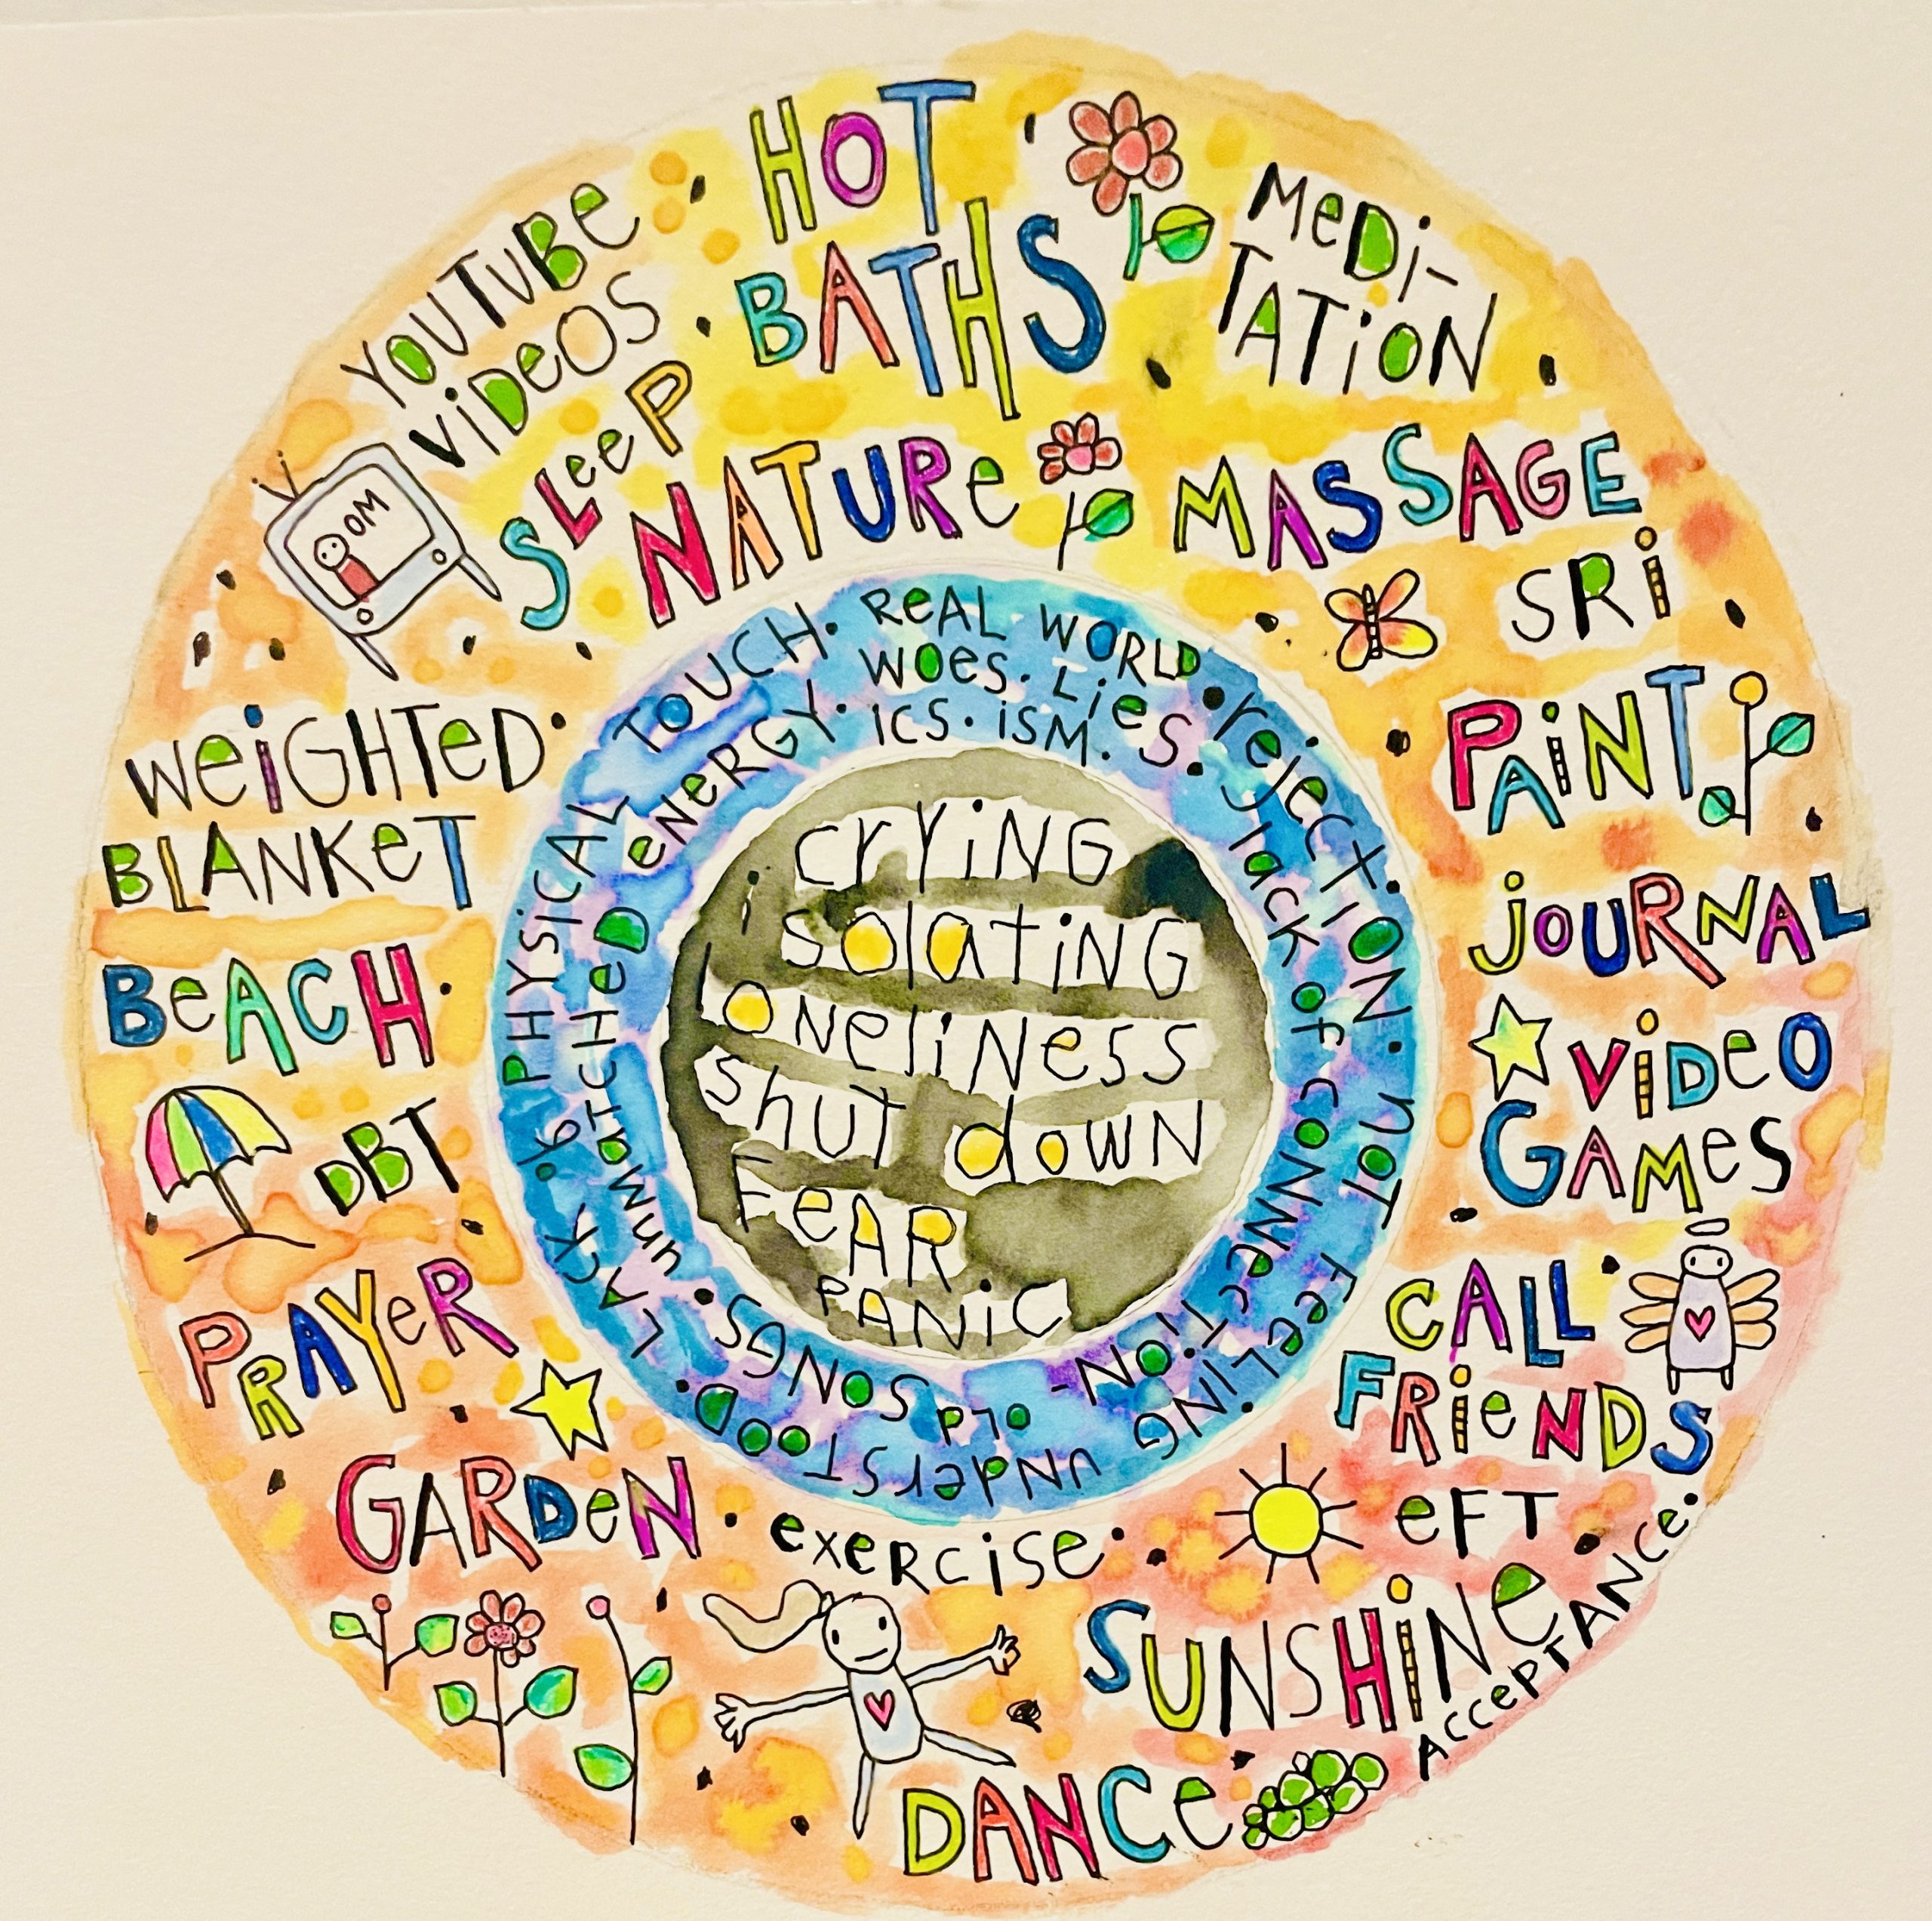 HOT
BATHS
MeDi-
TATiON
YOUTUBe
ViDeOS
SLeeP
OM
NATURe
MASSAGE
SRi
PAiNT
jOURNAL
ViDeO
GAMeS
CALL
FRieNDS
eFT
SUNSHiNe
AccePTANce.
DANCe
exeRciSe.
GARDeN.
PRAYeR
DBT
BeACH.
WeiGHTeD.
BLANKeT
ReAL WORLD.
WOeS. Lies.
rejecTiON. NOT FeeLiNG
UNDeRSTOOD.
LACK of PHYSicAL TOUCH.
lack of coNNecTiON.
OLD SONGS.
UNMaTCHeD eNeRGY.
iCS. iSM.
crYiNG
isolatiNG
loneliNess
shuT dowN
FeAR
PANiC